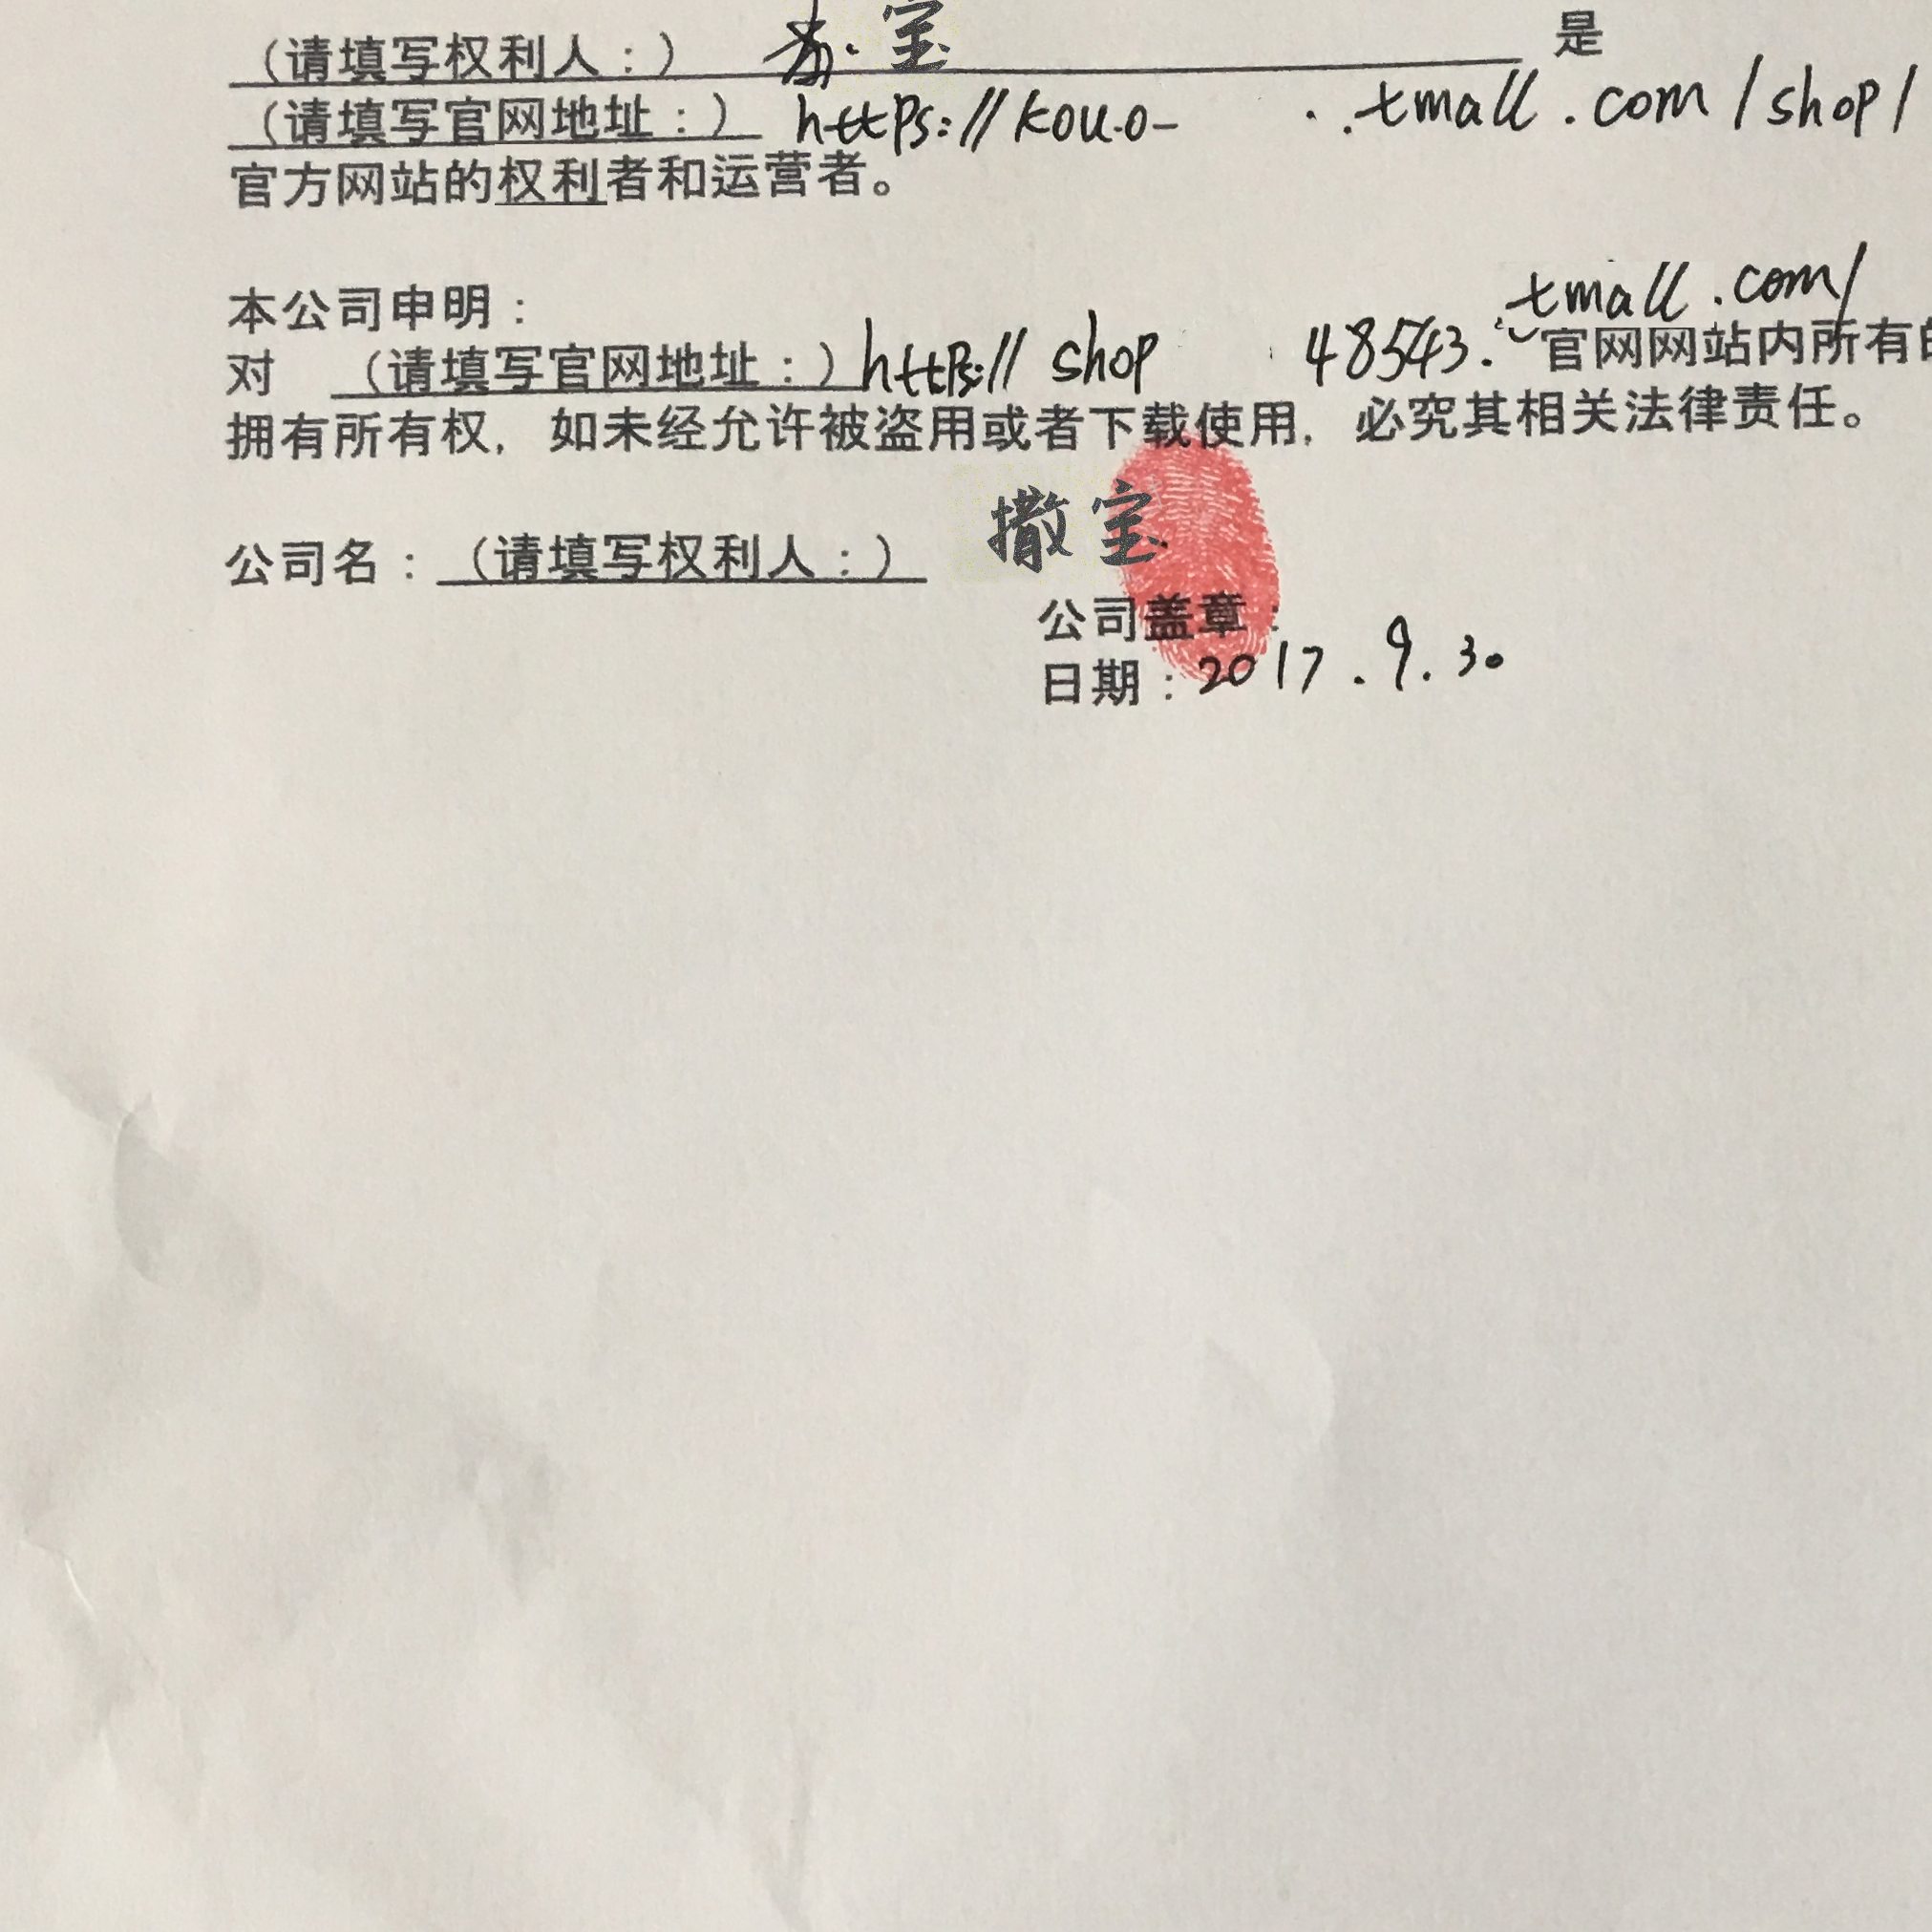 （请填写权利人：） 宝 是
（请填写官网地址：） https://kou.o- ..tmall.com/shop/
官方网站的权利者和运营者。
本公司申明：
tmall.com/
对 （请填写官网地址：）https:// shop 48543. 官网网站内所有
拥有所有权，如未经允许被盗用或者下载使用，必究其相关法律责任。
公司名：（请填写权利人：） 撒宝
公司盖章：
日期：2017.9.30